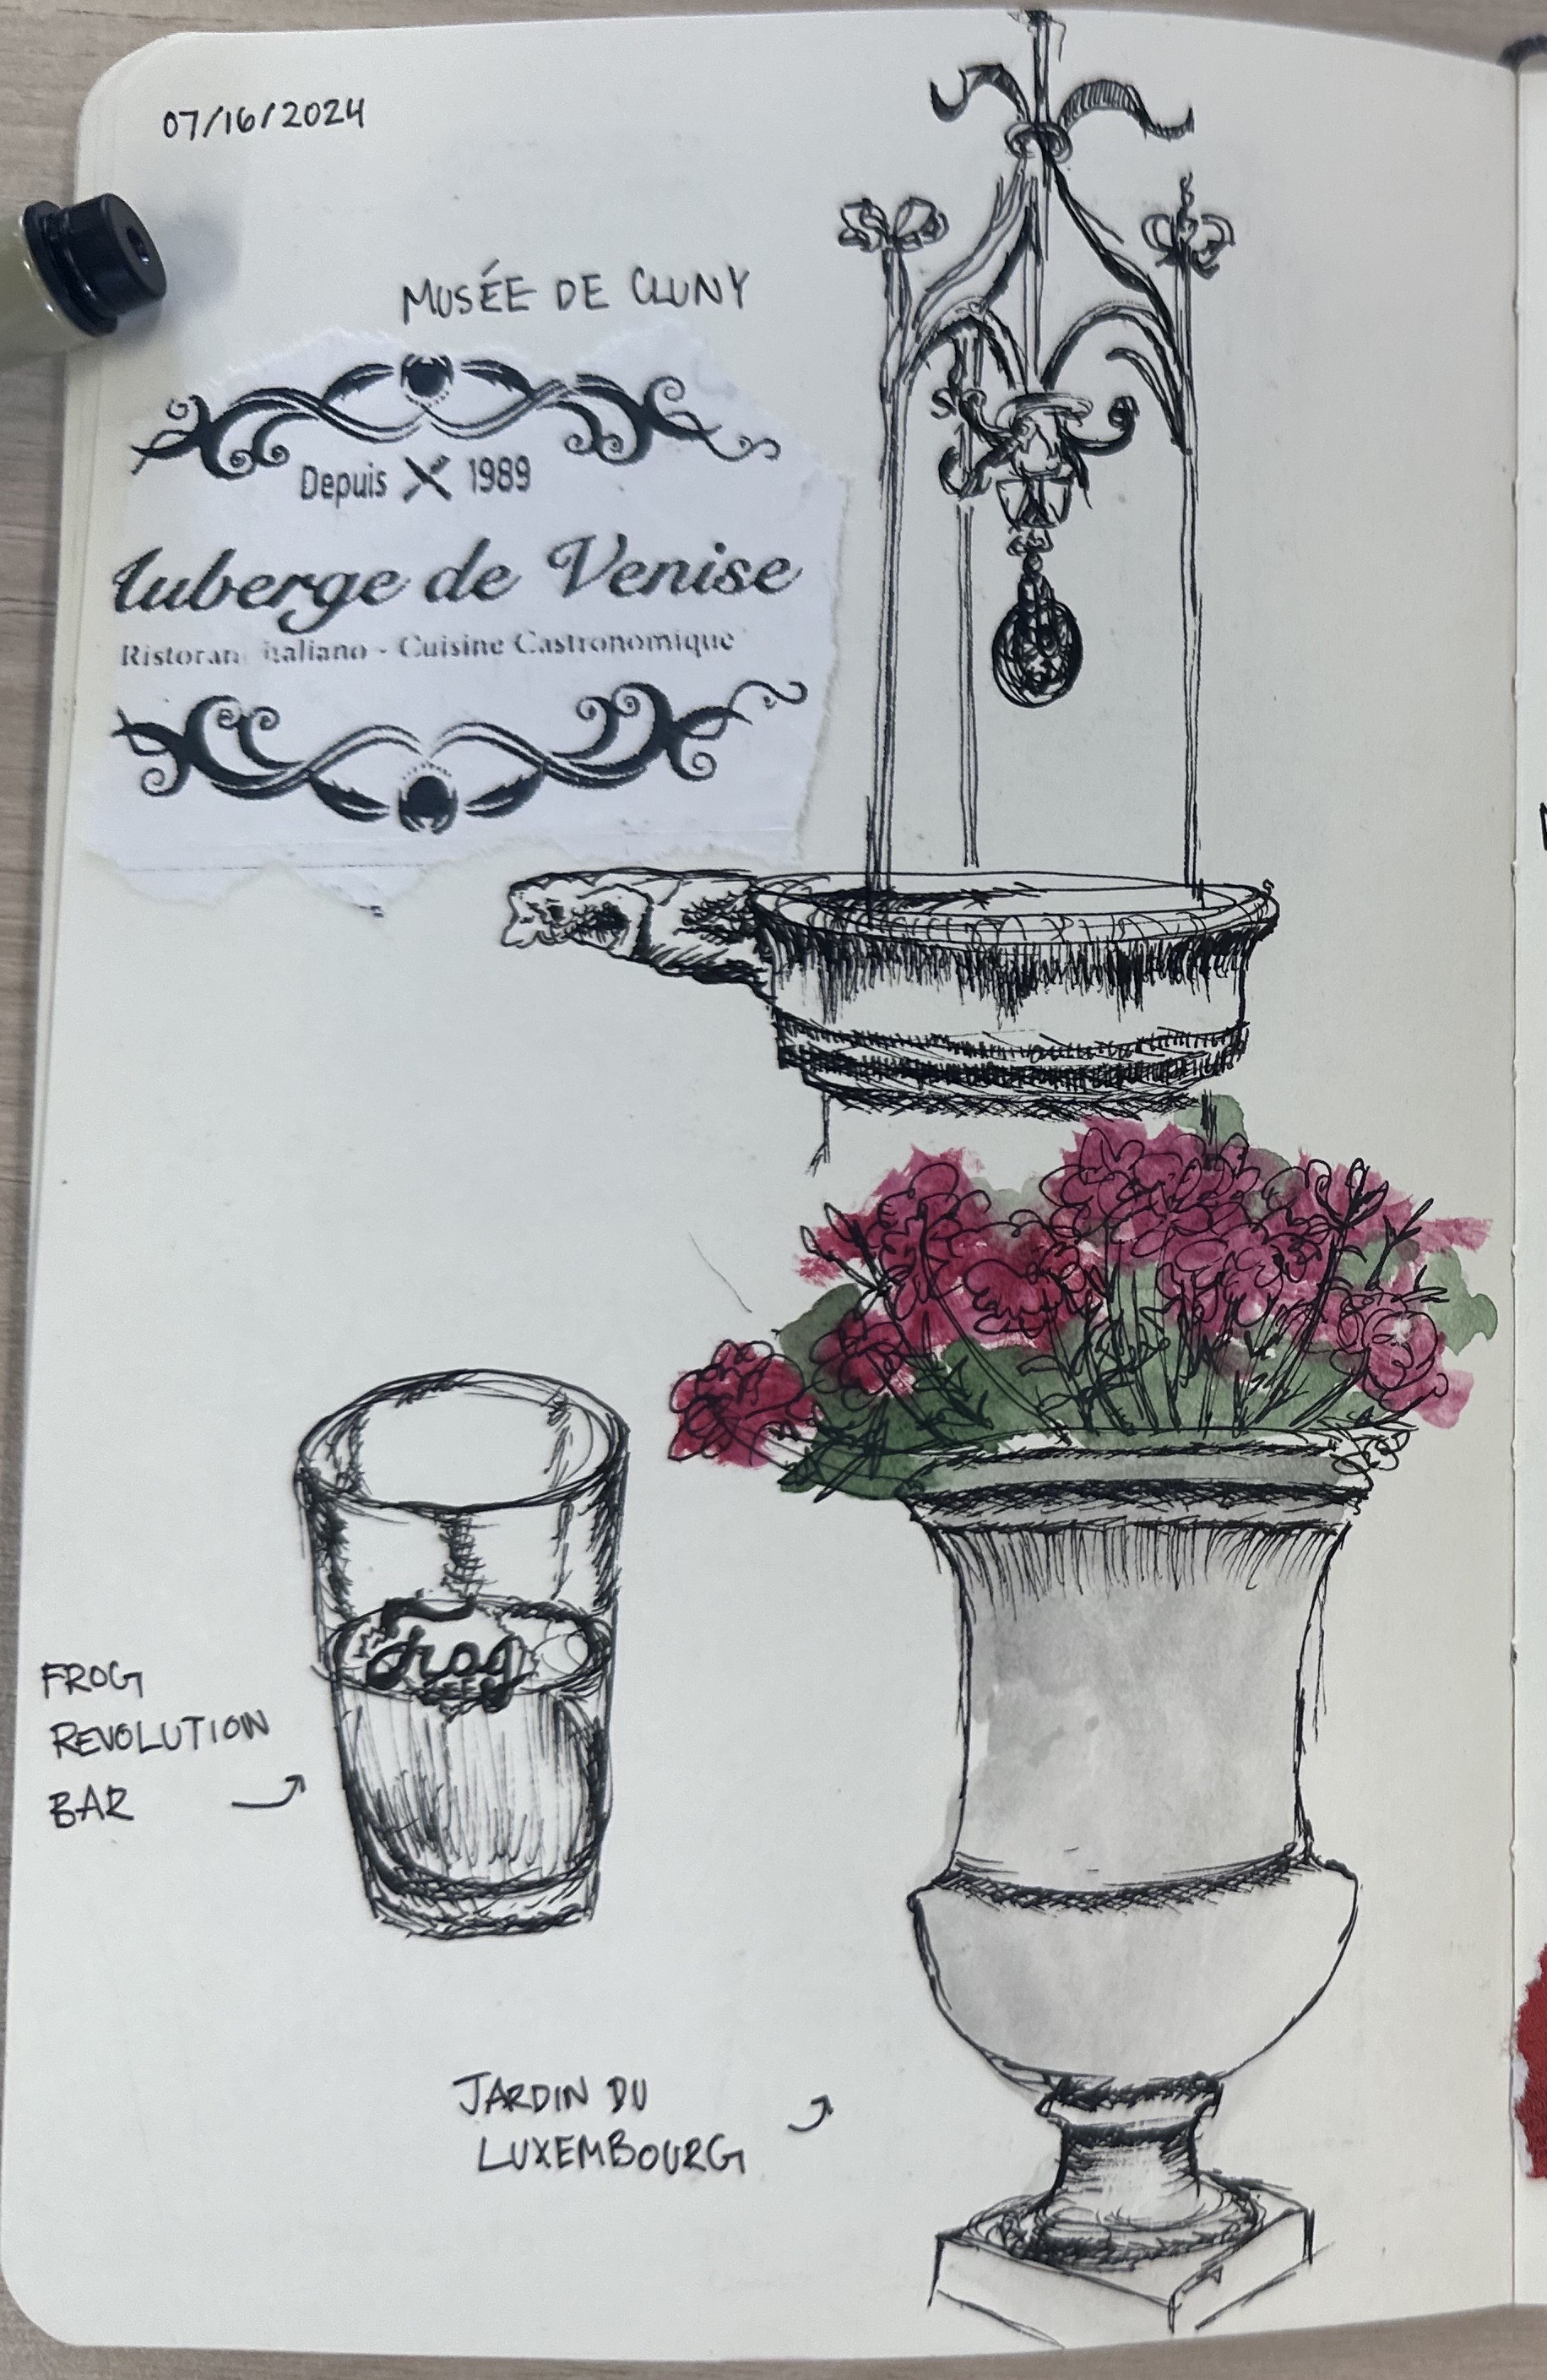 07/16/2024
MUSÉE DE CLUNY
Depuis 1989
Auberge de Venise
Ristoran italiano - Cuisine Gastronomique
frog
BEER
FROG
REVOLUTION
BAR
JARDIN DU
LUXEMBOURG